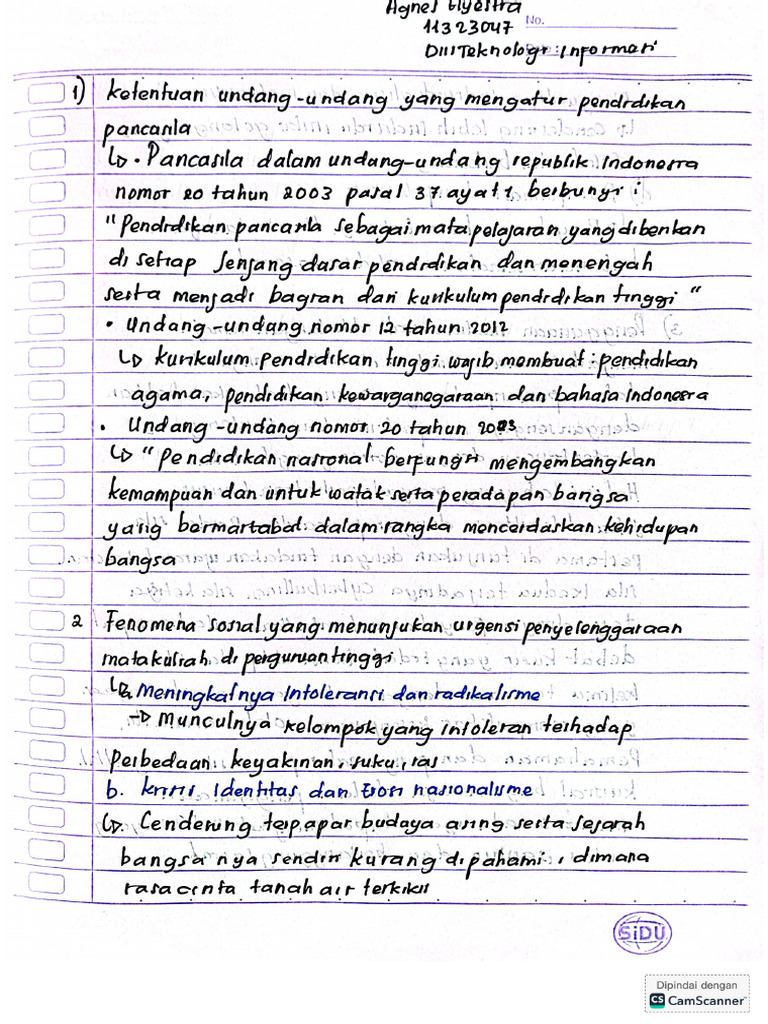 Agnes Elyestra
11323047 No.
DIII Teknologi Informasi
1) ketentuan undang-undang yang mengatur pendidikan
pancasila
↳ • Pancasila dalam undang-undang republik Indonesia
nomor 20 tahun 2003 pasal 37 ayat 1 berbunyi :
"Pendidikan pancasila sebagai mata pelajaran yang diberikan
di setiap Jenjang dasar pendidikan dan menengah
serta menjadi bagian dari kurikulum pendidikan tinggi"
• Undang-undang nomor 12 tahun 2012
↳ kurikulum pendidikan tinggi wajib membuat : pendidikan
agama, pendidikan kewarganegaraan dan bahasa Indonesia
• Undang-undang nomor 20 tahun 2003
↳ "pendidikan nasional berfungsi mengembangkan
kemampuan dan untuk watak serta peradapan bangsa
yang bermartabat dalam rangka mencerdaskan kehidupan
bangsa
2 Fenomena sosial yang menunjukan urgensi penyelenggaraan
matakuliah di perguruan tinggi
↳ a. Meningkatnya Intoleransi dan radikalisme
→ Munculnya kelompok yang intoleran terhadap
perbedaan keyakinan, suku, ras
b. krisis Identitas dan Erosi nasionalisme
↳ Cenderung terpapar budaya asing serta sejarah
bangsa nya sendiri kurang dipahami, dimana
rasa cinta tanah air terkikis
SiDU
Dipindai dengan
CS CamScanner